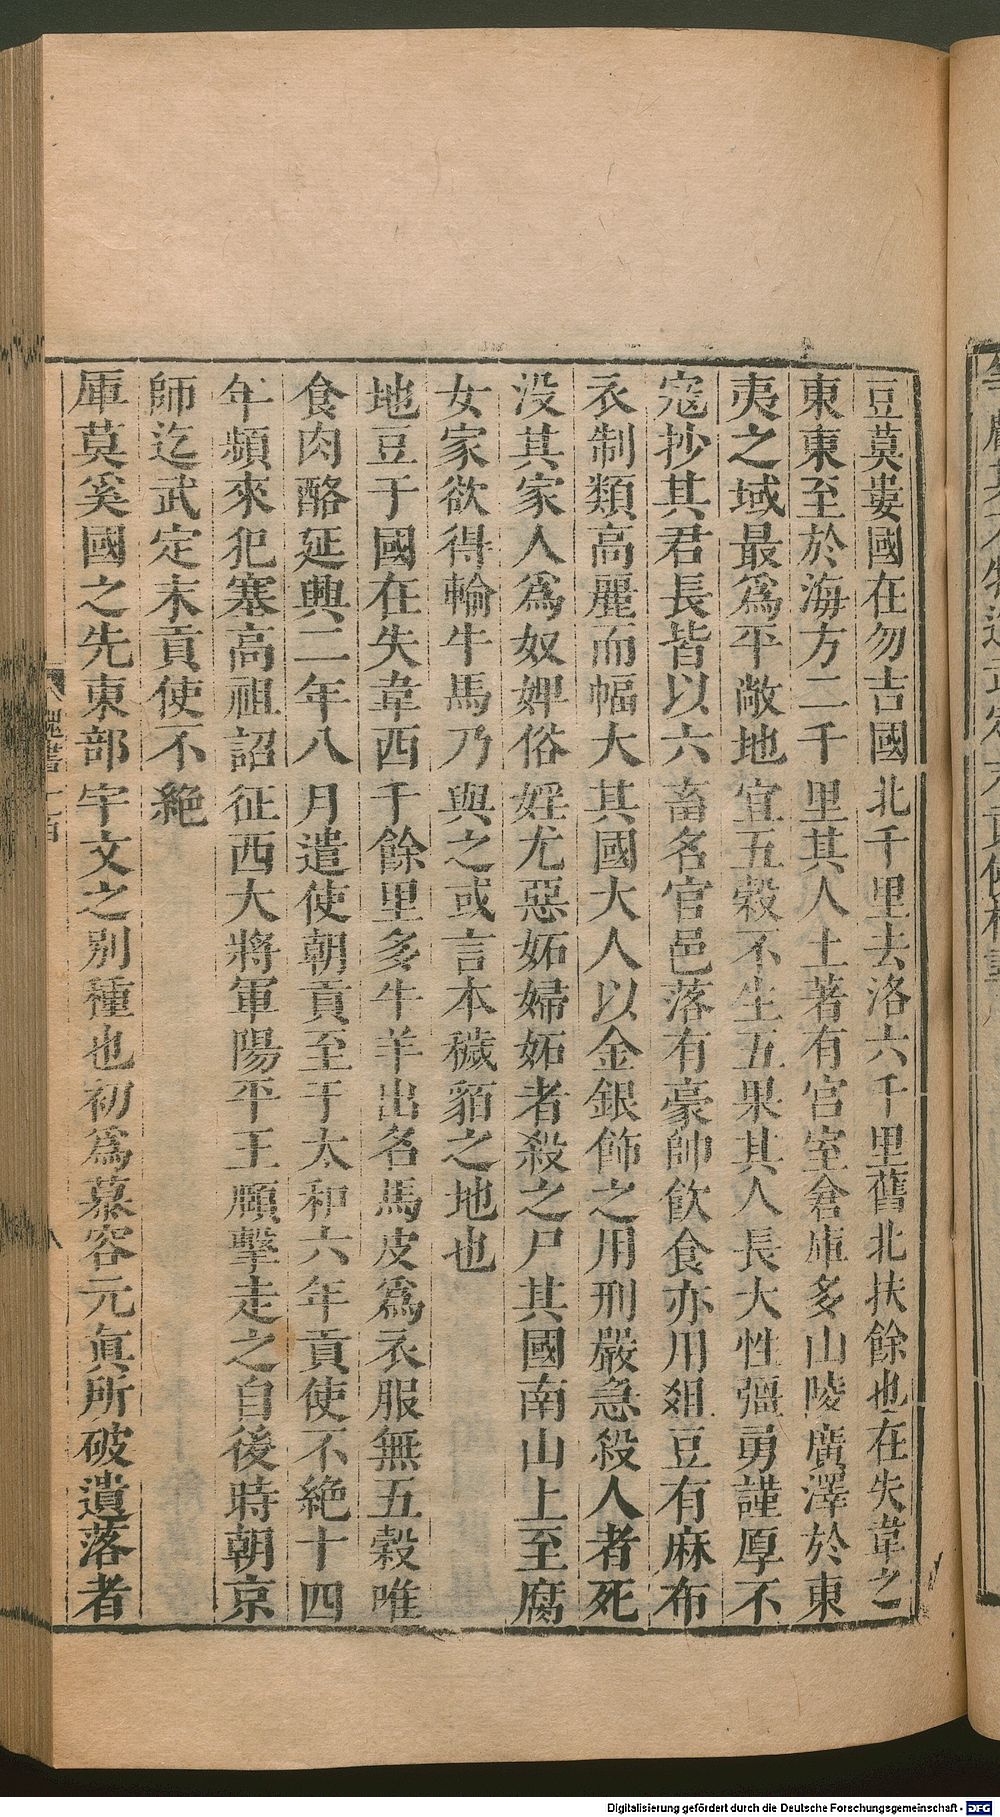 豆莫婁國在勿吉國北千里去洛六千里舊北扶餘也在失韋之
東東至於海方二千里其人土著有宮室倉庫多山陵廣澤於東
夷之域最爲平敞地宜五穀不生五果其人長大性彊勇謹厚不
寇抄其君長皆以六畜名官邑落有豪帥飲食亦用俎豆有麻布
衣制類高麗而幅大其國大人以金銀飾之用刑嚴急殺人者死
没其家人爲奴婢俗婬尤惡妬婦妬者殺之尸其國南山上至腐
女家欲得輸牛馬乃與之或言本穢貊之地也
地豆于國在失韋西千餘里多牛羊出名馬皮爲衣服無五穀唯
食肉酪延興二年八月遣使朝貢至于太和六年貢使不絶十四
年頻來犯塞高祖詔征西大將軍陽平王頤擊走之自後時朝京
師迄武定末貢使不絶
庫莫奚國之先東部宇文之別種也初爲慕容元眞所破遺落者
魏書一百
八
Digitalisierung gefördert durch die Deutsche Forschungsgemeinschaft - DFG